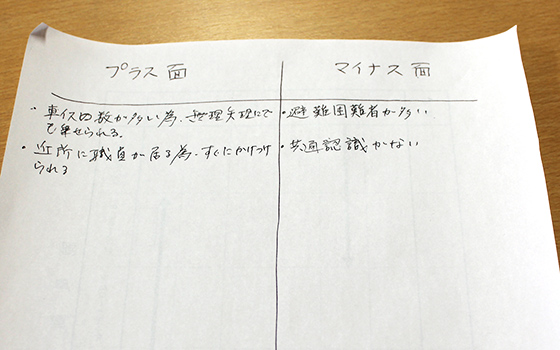 プラス面
・車イスの数が多い為、無理矢理にで
も乗せられる。
・近所に職員が居る為、すぐにかけつけ
られる
マイナス面
・避難困難者が多い
・共通認識がない